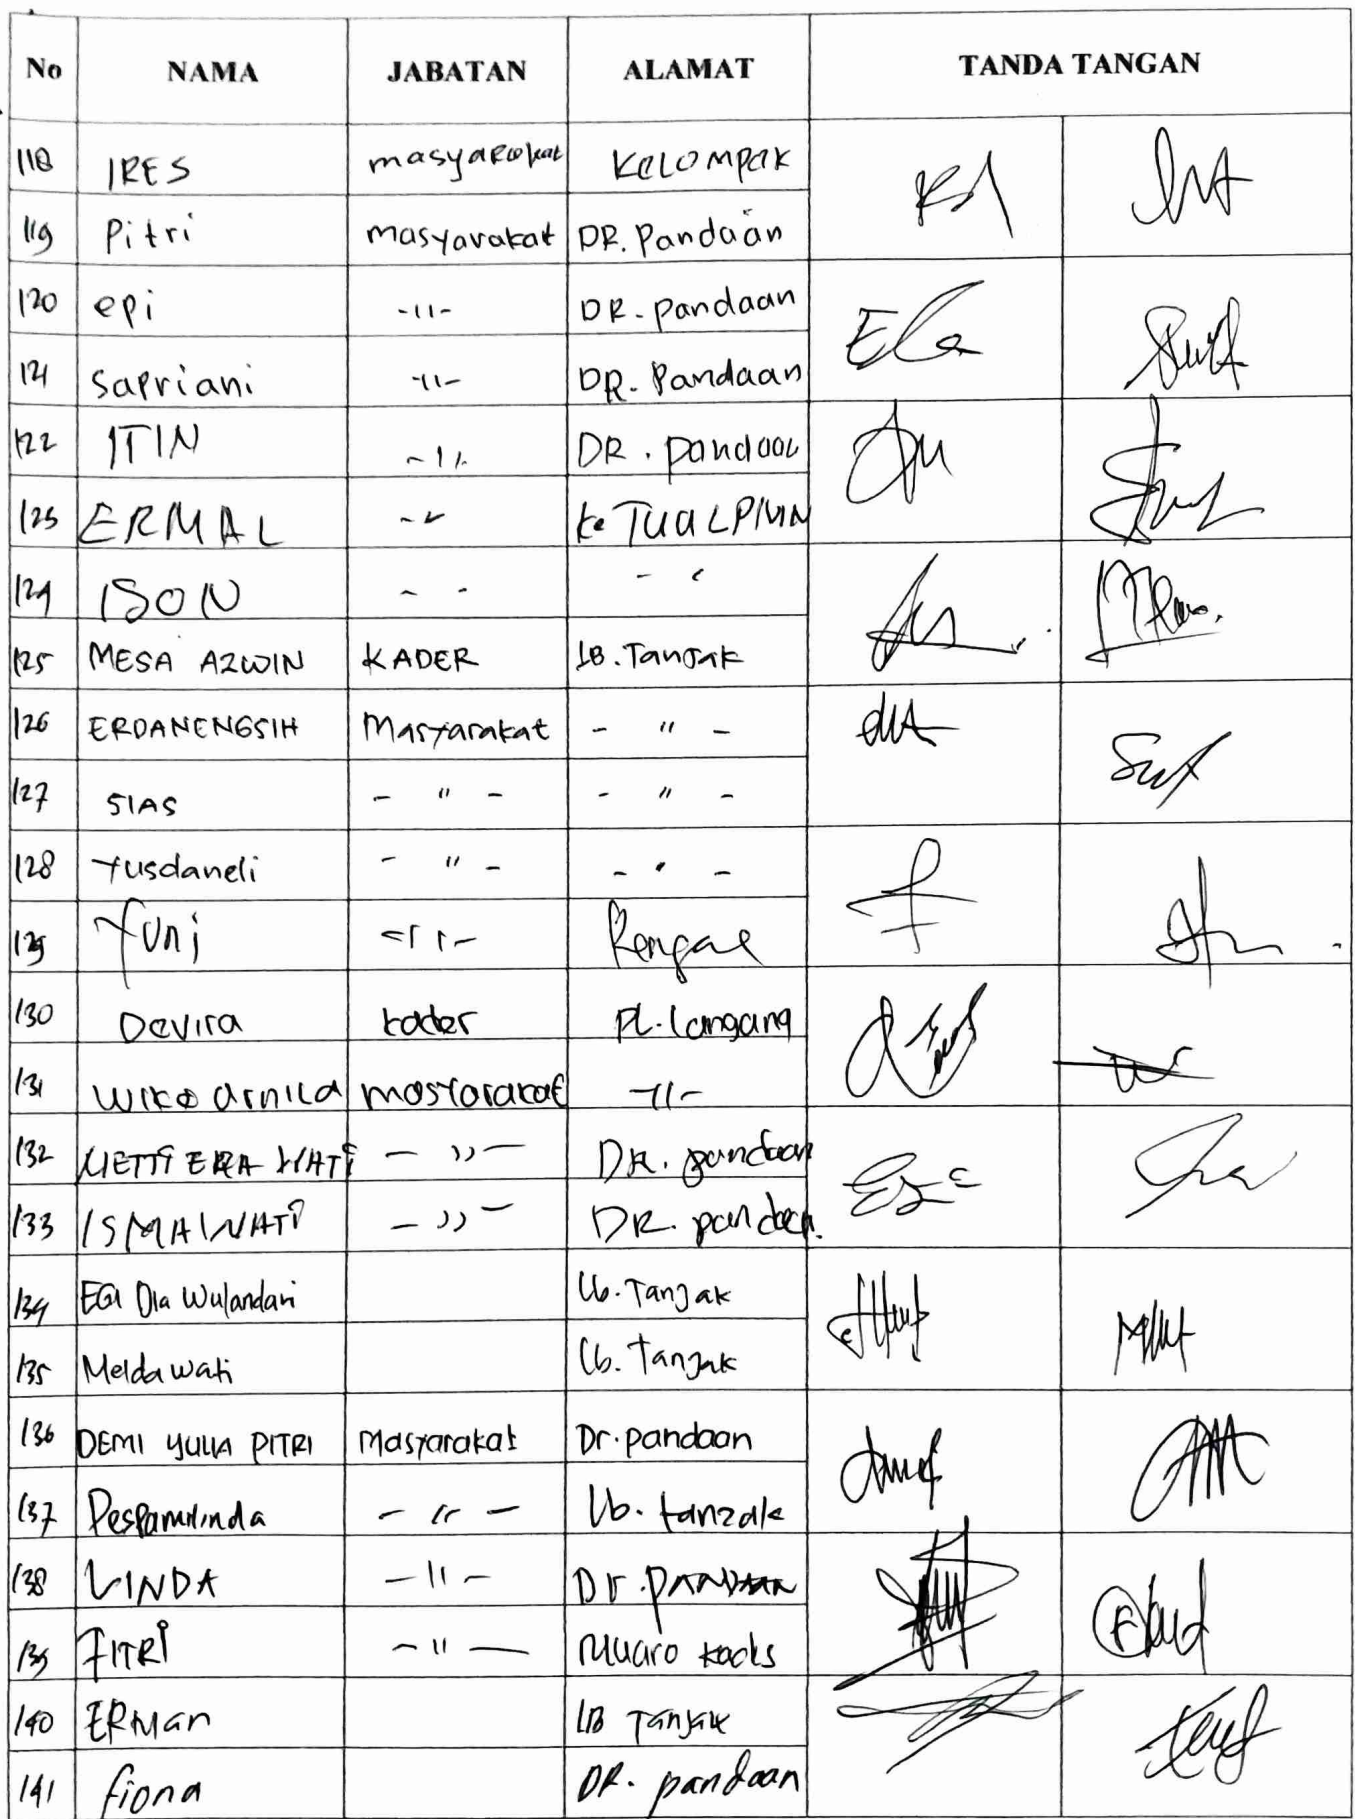 No NAMA JABATAN ALAMAT TANDA TANGAN
118 IRES masyarakat Kelompak
119 Pitri masyarakat DR. Pandaan
120 epi -11- DR. pandaan
121 sapriani -11- DR. Pandaan
122 ITIN -11- DR. pandaan
123 ERMAL
124 ISON
125 MESA AZWIN KADER LB. Tanjak
126 ERDANENGSIH Masyarakat - " -
127 SIAS - " - - " -
128 Yusdaneli - " - - " -
129 Yuni -11-
130 Devira kader PL. Langang
131 Wike arnila masyarakat -11-
132 NETTI ERA WATI - ,, - DR. pandaan
133 ISMAWATI - ,, - DR. pandaan.
134 EGI Dia Wulandari Lb. Tanjak
135 Melda wati Lb. Tanjak
136 DEMI YULIA PITRI Masyarakat Dr. pandaan
137 - " - Lb. tanzak
138 LINDA - 11 - Dr. PANDAAN
139 FITRI - 11 - Muaro
140 ERMan LB Tanjak
141 fiona DR. pandaan